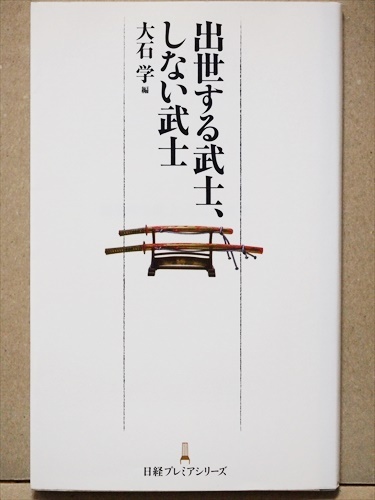 出世する武士、
しない武士
大石 学 編
日経プレミアシリーズ